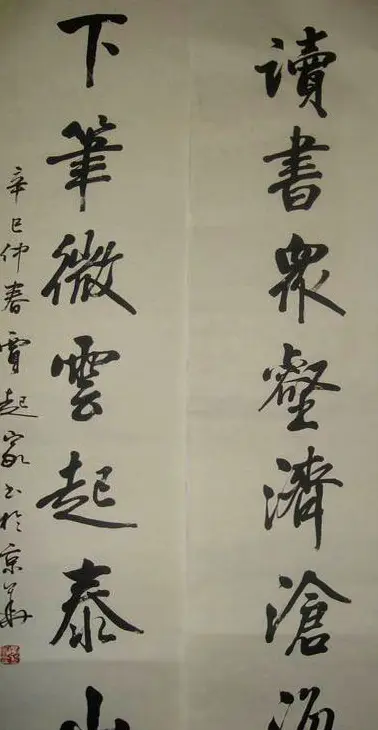 讀書眾壑濟滄海
下筆微雲起泰山
辛巳仲春賈起家书於京華